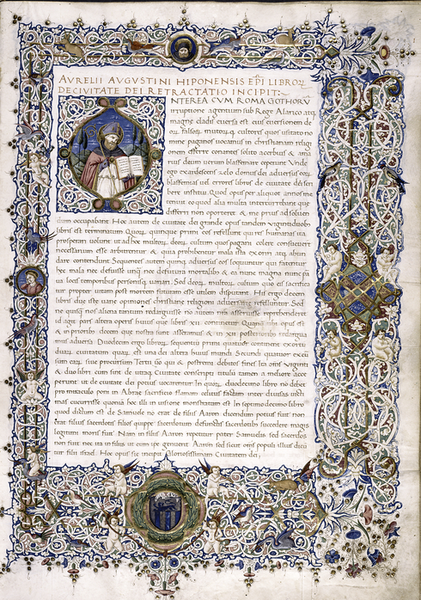 AVRELII AVGVSTINI HIPONENSIS EP̄I LIBROꝜ
DECIVITATE DEI RETRACTATIO INCIPIT:
NTEREA CVM ROMA GOTHORV̄
irruptione agentium sub Rege Alarico atq;
magne cladis euersa est eius euersionem de
oꝝ falsoꝝ multoꝝq; cultores quos usitato no
mine paganos uocamus in christianam religi
onem efferre conantes solito acerbius & ama
rius deum uerum blasfemare ceperunt Vnde
ego exardescens zelo domus dei aduersus eoꝝ
blasfemias uel errores libros de ciuitate dei
bere institui Quod opus per aliquot annos me
tenuit eo quod alia multa interrumpebant que
differri non oporteret & me prius ad soluen
dum occupabant Hoc autem de ciuitate dei grande opus tandem uigintiduob;
libris est terminatum Quoꝝ quinque primi eos refellunt qui res humanas ita
prosperari uolunt ut ad hoc multoꝝ deoꝝ cultum quos pagani colere consueuerunt
necessarium esse arbitrentur & quia prohibetur mala ista exoriri atq; abun
dare contendunt Sequentes autem quinq; aduersus eos loquuntur qui fatentur
hec mala nec defuisse unq; nec defutura mortalibus & ea nunc magna nunc pa
ua locis temporibus personisq; uariari Sed deoꝝ multoꝝ cultum quo eis sacrifica
tur propter uitam post mortem futuram esse utilem disputant His ergo decem
libris due iste uane opiniones christiane religioni aduersarie refelluntur Sed
ne quisq; nos aliena tantum redarguisse no autem nra asseruisse reprehenderet
id agit pars altera operis huius que libris xii continetur Quamquam ubi opus est
& in prioribus decem que nostra sunt asseramus & in xii posterioribus redargua
mus aduersa Duodecim ergo librorum sequentium primi quatuor continent exortu
duaꝝ ciuitatum quaꝝ est una dei altera huius mundi Secundi quatuor excur
sum eaꝝ siue procursum Tertii qui & postremi debitos fines Ita oēs uiginti
& duo libri cum sint de utraq; Ciuitate conscripti titulum tamen a meliore acce
perunt ut de ciuitate dei potius uocarentur In quoꝝ duodecimo libro no debet
pro miraculo poni in Abrae sacrificio flamam celitus factam inter diuisas uicti
mas cucurrisse quoniam hoc illi in uisione monstratum est In septimo decimo libro
quod dictum est de Samuele no erat de filiis Aaron dicendum potius fuit non
erat filius sacerdotis filios quippe sacerdotum defunctis sacerdotibus succedere magis
legitimi moris fuit Nam in filiis Aaron repperitur pater Samuelis sed sacerdos
non fuit nec ita in filiis ut eum ipse genuerit Aaron sed sicut oms populi illius dicu
tur filii israel Hoc opus sic incipit Gloriosissimam Ciuitatem dei